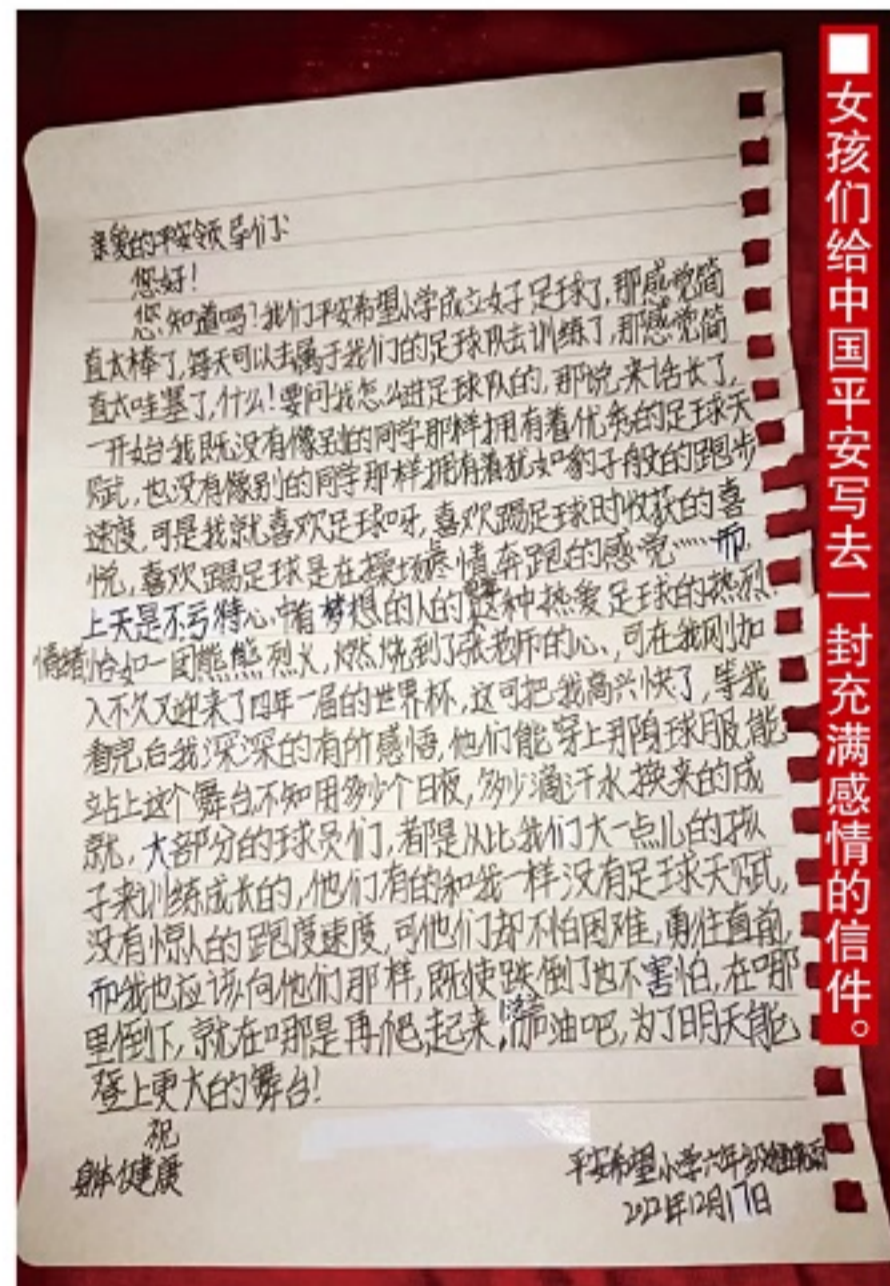 ■女孩们给中国平安写去一封充满感情的信件。
亲爱的平安领导们:
您好!
您知道吗?我们平安希望小学成立女子足球了,那感觉简
直太棒了,每天可以去属于我们的足球队去训练了,那感觉简
直太哇塞了,什么!要问我怎么进足球队的,那说来话长了,
一开始我既没有像别的同学那样拥有着优秀的足球天
赋,也没有像别的同学那样拥有着犹如豹子般的跑步
速度,可是我就喜欢足球呀,喜欢踢足球时收获的喜
悦,喜欢踢足球是在操场尽情奔跑的感觉……而
上天是不亏待心中有梦想的人的 这种热爱足球的热烈
情绪恰如一团熊熊烈火,燃烧到了张老师的心、可在我刚加
入不久又迎来了四年一届的世界杯,这可把我高兴快了,等我
看完后我深深的有所感悟,他们能穿上那身球服,能
站上这个舞台不知用多少个日夜,多少滴汗水换来的成
就,大部分的球员们,都是从比我们大一点儿的孩
子来训练成长的,他们有的和我一样没有足球天赋,
没有惊人的跑度速度,可他们却不怕困难,勇往直前,
而我也应该向他们那样,既使跌倒了也不害怕,在哪
里倒下,就在哪是再爬起来,加油吧,为了明天能
登上更大的舞台!
祝
身体健康
平安希望小学六年级
2022年12月17日